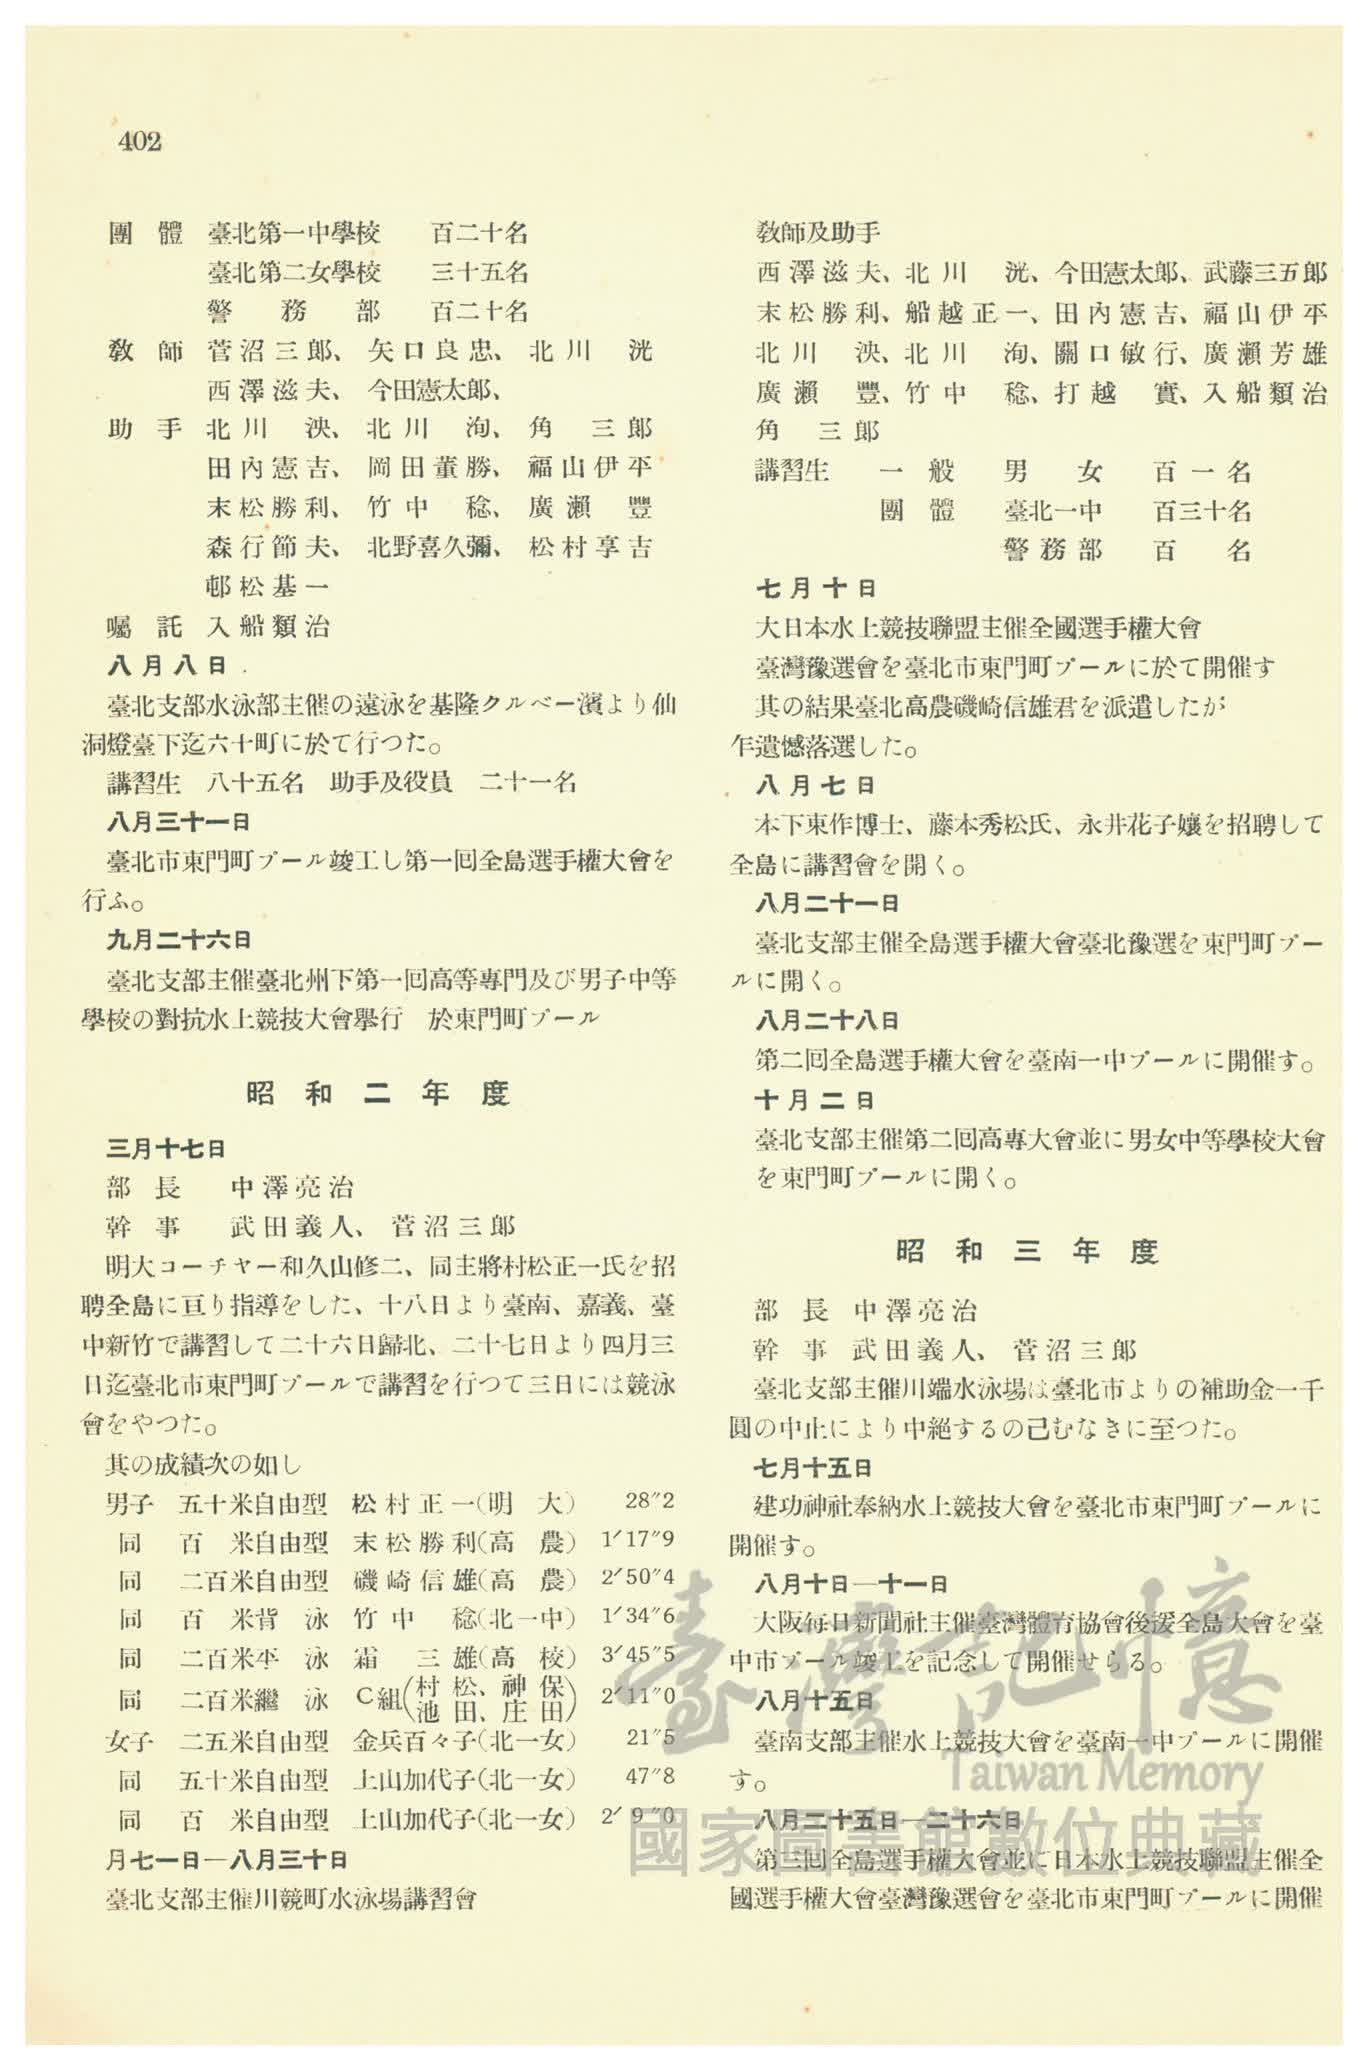 402
團體 臺北第一中學校 百二十名
臺北第二女學校 三十五名
警務部 百二十名
教師 菅沼三郎、矢口良忠、北川洸
西澤滋夫、今田憲太郎、
助手 北川泱、北川洵、角三郎
田內憲吉、岡田董勝、福山伊平
末松勝利、竹中稔、廣瀨豐
森行節夫、北野喜久彌、松村享吉
邨松基一
囑託 入船類治
八月八日
臺北支部水泳部主催の遠泳を基隆クルベー濱より仙
洞燈臺下迄六十町に於て行つた。
講習生 八十五名 助手及役員 二十一名
八月三十一日
臺北市東門町プール竣工し第一囘全島選手權大會を
行ふ。
九月二十六日
臺北支部主催臺北州下第一囘高等專門及び男子中等
學校の對抗水上競技大會擧行 於東門町プール
昭和二年度
三月十七日
部長 中澤亮治
幹事 武田義人、菅沼三郎
明大コーチャー和久山修二、同主將村松正一氏を招
聘全島に亘り指導をした、十八日より臺南、嘉義、臺
中新竹で講習して二十六日歸北、二十七日より四月三
日迄臺北市東門町プールで講習を行つて三日には競泳
會をやつた。
其の成績次の如し
男子 五十米自由型 松村正一(明大) 28″2
同 百米自由型 末松勝利(高農) 1′17″9
同 二百米自由型 磯崎信雄(高農) 2′50″4
同 百米背泳 竹中稔(北一中) 1′34″6
同 二百米平泳 霜三雄(高校) 3′45″5
同 二百米繼泳 C組(村松、神保 池田、庄田) 2′11″0
女子 二五米自由型 金兵百々子(北一女) 21″5
同 五十米自由型 上山加代子(北一女) 47″8
同 百米自由型 上山加代子(北一女) 2′9″0
月七一日—八月三十日
臺北支部主催川競町水泳場講習會
教師及助手
西澤滋夫、北川洸、今田憲太郎、武藤三五郎
末松勝利、船越正一、田內憲吉、福山伊平
北川泱、北川洵、關口敏行、廣瀨芳雄
廣瀨豐、竹中稔、打越實、入船類治
角三郎
講習生 一般 男女 百一名
團體 臺北一中 百三十名
警務部 百名
七月十日
大日本水上競技聯盟主催全國選手權大會
臺灣豫選會を臺北市東門町プールに於て開催す
其の結果臺北高農磯崎信雄君を派遣したが
乍遺憾落選した。
八月七日
木下東作博士、藤本秀松氏、永井花子孃を招聘して
全島に講習會を開く。
八月二十一日
臺北支部主催全島選手權大會臺北豫選を東門町プー
ルに開く。
八月二十八日
第二囘全島選手權大會を臺南一中プールに開催す。
十月二日
臺北支部主催第二囘高專大會並に男女中等學校大會
を東門町プールに開く。
昭和三年度
部長 中澤亮治
幹事 武田義人、菅沼三郎
臺北支部主催川端水泳場は臺北市よりの補助金一千
圓の中止により中絕するの己むなきに至つた。
七月十五日
建功神社奉納水上競技大會を臺北市東門町プールに
開催す。
八月十日—十一日
大阪每日新聞社主催臺灣體育協會後援全島大會を臺
中市プール竣工を記念して開催せらる。
八月十五日
臺南支部主催水上競技大會を臺南一中プールに開催
す。
八月二十五日—二十六日
第三囘全島選手權大會並に日本水上競技聯盟主催全
國選手權大會臺灣豫選會を臺北市東門町プールに開催
臺灣記憶
Taiwan Memory
國家圖書館數位典藏